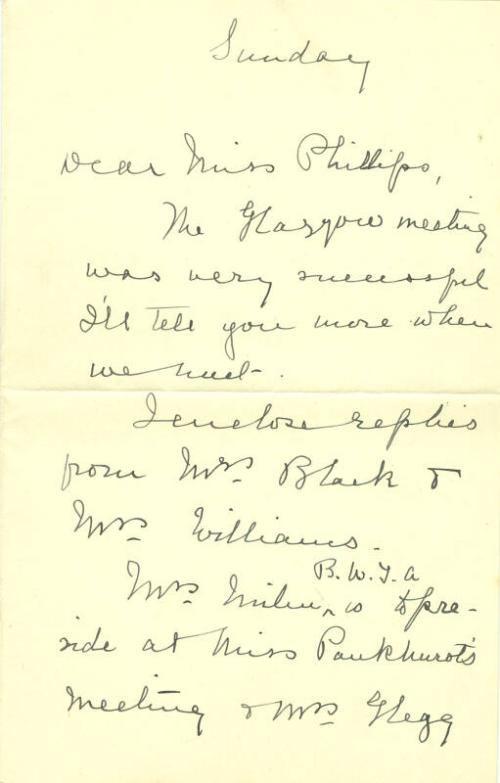 Sunday
Dear Miss Phillips,
The Glasgow meeting
was very successful
I'll tell you more when
we meet.
I enclose replies
from Mrs. Black &
Mrs. Williams.
B.W.T.A
Mrs. Milne ^ is to pre-
side at Miss Pankhurst's
meeting & Mrs Glegg